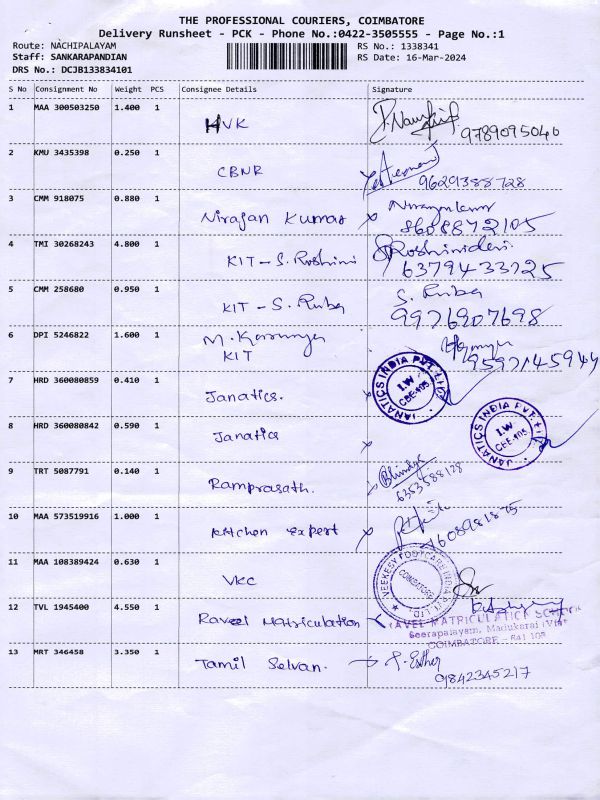 THE PROFESSIONAL COURIERS, COIMBATORE
Delivery Runsheet - PCK - Phone No.:0422-3505555 - Page No.:1
Route: NACHIPALAYAM
Staff: SANKARAPANDIAN
DRS No.: DCJB133834101
RS No.: 1338341
RS Date: 16-Mar-2024
S No Consignment No Weight PCS Consignee Details Signature
1 MAA 300503250 1.400 1 HVK
9789095040
2 KMU 3435398 0.250 1 CBNR
9629388728
3 CMM 918075 0.880 1 Nirajan Kumar
8608872105
4 TMI 30268243 4.800 1 KIT - S. Roshini Roshinidevi
6379433725
5 CMM 258680 0.950 1 KIT - S. Ruba S. Ruba
9976907698
6 DPI 5246822 1.600 1 M. Karunya
KIT
9597145944
7 HRD 360080859 0.410 1 Janatics.
JANATICS INDIA PVT. LTD
I.W
CBE-105
8 HRD 360080842 0.590 1 Janatics
JANATICS INDIA PVT. LTD
I.W
CBE-105
9 TRT 5087791 0.140 1 Ramprasath.
6353588128
10 MAA 573519916 1.000 1 Kitchen Expert
11 MAA 108389424 0.630 1 VKC
VEEKESY FOOTCARE INDIA PVT LTD.
COIMBATORE
12 TVL 1945400 4.550 1 Raveel Matriculation
MATRICULATION SCHOOL
Seerapalayam, Madukarai (Via)
COIMBATORE - 641 105
13 MRT 346458 3.350 1 Tamil Selvan. P. Esther
9842345217